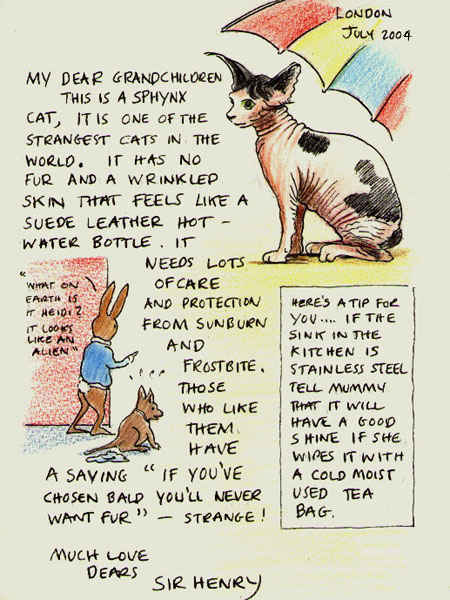 LONDON
JULY 2004
MY DEAR GRANDCHILDREN
THIS IS A SPHYNX
CAT, IT IS ONE OF THE
STRANGEST CATS IN THE
WORLD. IT HAS NO
FUR AND A WRINKLED
SKIN THAT FEELS LIKE A
SUEDE LEATHER HOT-
WATER BOTTLE. IT
NEEDS LOTS
OF CARE
AND PROTECTION
FROM SUNBURN
AND
FROSTBITE.
THOSE
WHO LIKE
THEM
HAVE
A SAYING "IF YOU'VE
CHOSEN BALD YOU'LL NEVER
WANT FUR" – STRANGE!
"WHAT ON
EARTH IS
IT HEIDI?
IT LOOKS
LIKE AN
ALIEN"
HERE'S A TIP FOR
YOU.... IF THE
SINK IN THE
KITCHEN IS
STAINLESS STEEL
TELL MUMMY
THAT IT WILL
HAVE A GOOD
SHINE IF SHE
WIPES IT WITH
A COLD MOIST
USED TEA
BAG.
MUCH LOVE
DEARS
SIR HENRY